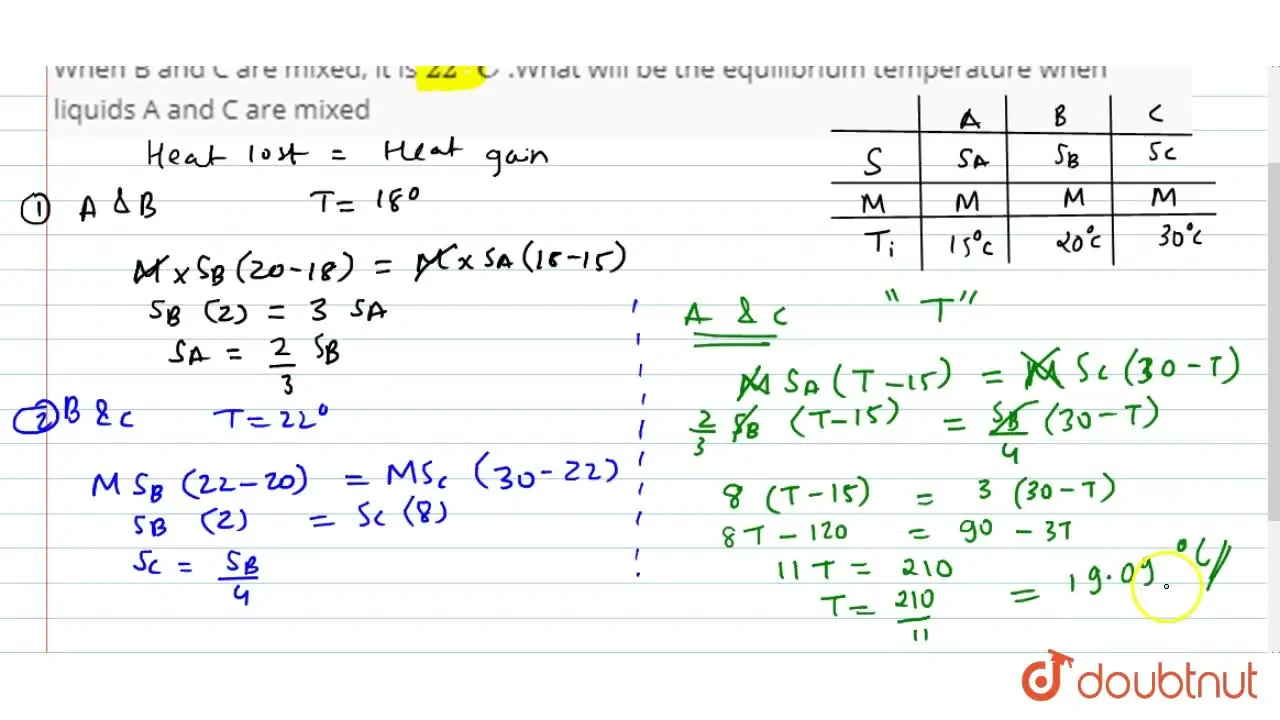 When B and C are mixed, it is 22 °C .What will be the equilibrium temperature when
liquids A and C are mixed
A B C
S SA SB SC
M M M M
Ti 15°C 20°C 30°C
Heat lost = Heat gain
① A & B T = 18°
M x SB (20-18) = M x SA (18-15)
SB (2) = 3 SA
SA = 2/3 SB
② B & C T = 22°
M SB (22-20) = M SC (30-22)
SB (2) = SC (8)
SC = SB/4
A & C "T"
M SA (T-15) = M SC (30-T)
2/3 SB (T-15) = SB/4 (30-T)
8 (T-15) = 3 (30-T)
8T - 120 = 90 - 3T
11T = 210
T = 210/11 = 19.09 °C//
doubtnut